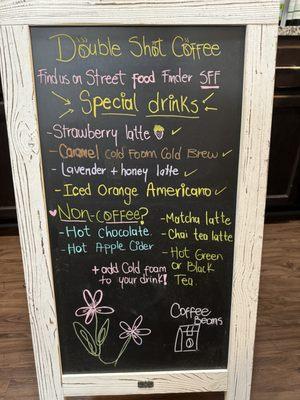 Double Shot Coffee
Find us on Street food Finder SFF
Special drinks
- Strawberry latte
- Caramel cold foam Cold Brew
- Lavender + honey latte
- Iced Orange Americano
Non-coffee?
- Hot Chocolate
- Hot Apple Cider
- Matcha latte
- Chai tea latte
- Hot Green
or Black
Tea.
+ add Cold foam
to your drink!
Coffee
Beans